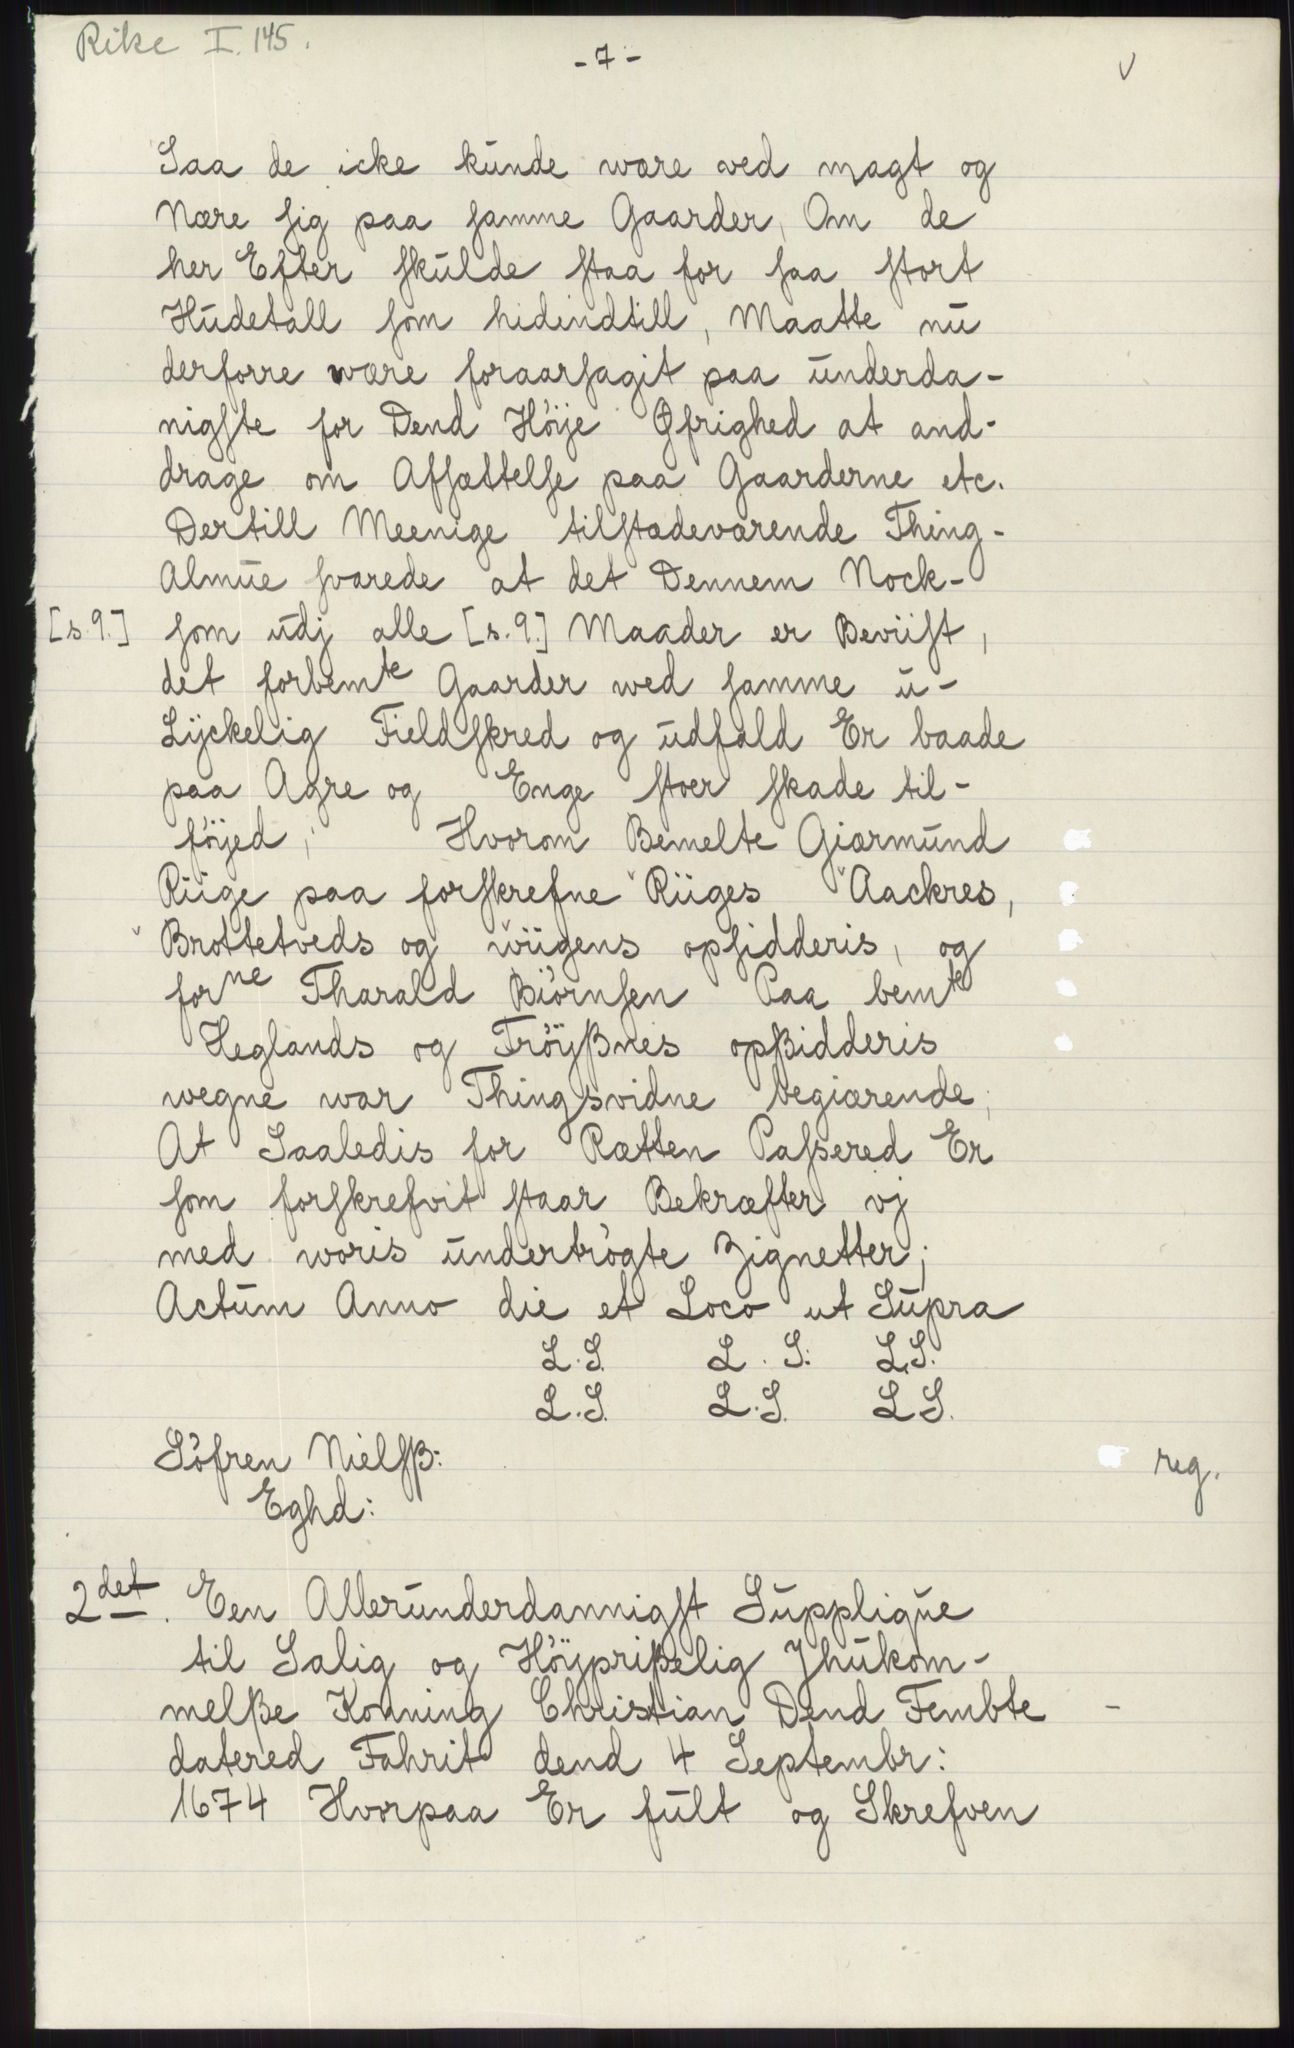 Rike I. 145.
- 7 -
v
Saa de icke kunde være ved magt og
Nære sig paa samme Gaarder, Om de
her Efter skulde staa for saa stort
Hudetall som hidindtill, Maatte nu
derforre være foraarsagit paa underda-
nigste for Dend Höije Øfrighed at and-
drage om Afsættelse paa Gaarderne etc.
Dertill Meenige tilstædeværende Thing-
Almue svarede at det Dennem Nock-
[s.9.] som udj alle [s.9.] Maader er Beviist,
det forbemte Gaarder wed samme u-
Lÿckelig Fieldskred og udfald Er baade
paa Agre og Enge stoer skade til-
föÿed; Hvorom Bemelte Giærmund
Riige paa forskrefne Riiges Aackres,
Brottetveds og wiigens opsidderis, og
forne Tharald Biörnsen Paa bemte
Heglands og Tröÿßnes opßidderis
wegne war Thingsvidne begiærende;
At Saaledis for Rætten Passered Er
som forskrefvit staar Bekræfter vj
med woris undertrögte Zignetter;
Actum Anno die et Loco ut Supra
L.S. L.S. L.S.
L.S. L.S. L S.
Söfren Nielsß: reg.
Eghd:
2det. Een Allerunderdannigst Supplique
til Salig og Höÿprißelig Jhukom-
melße Konning Christian Dend Fembte -
datered Fahrit dend 4 Septembr:
1674 Hvorpaa Er fult og Skrefven